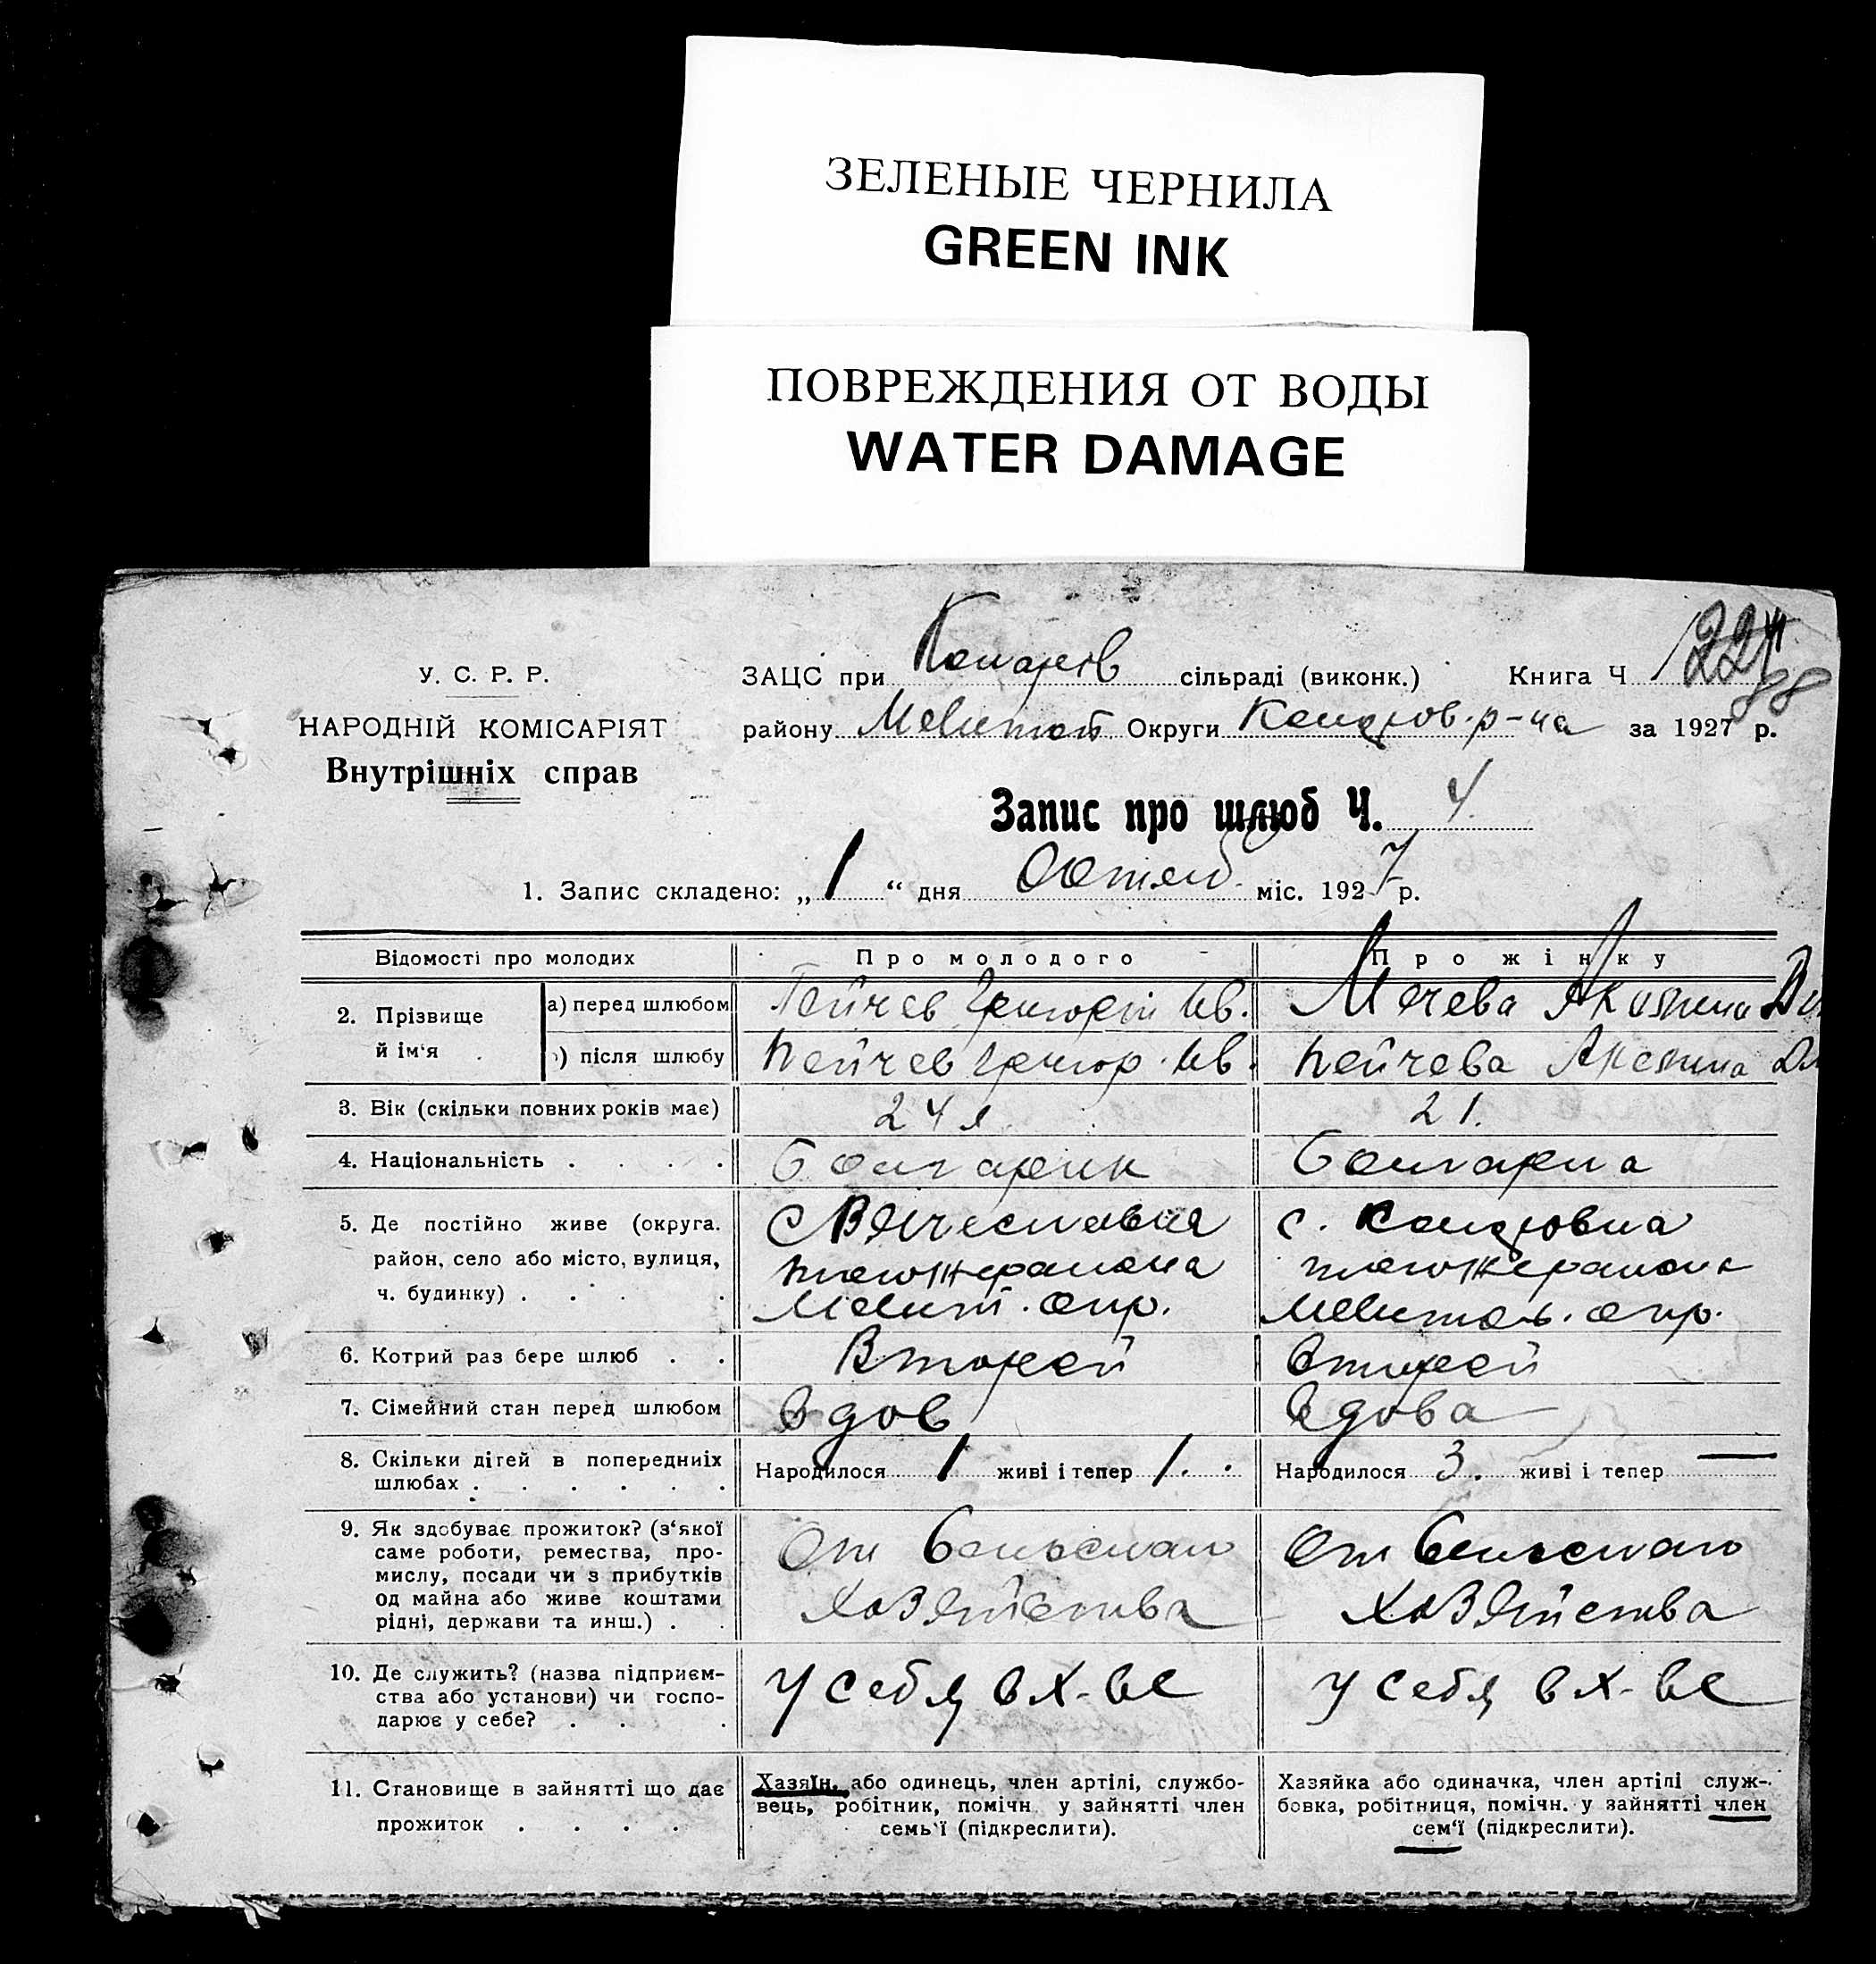 ЗЕЛЕНЫЕ ЧЕРНИЛА
GREEN INK
ПОВРЕЖДЕНИЯ ОТ ВОДЫ
WATER DAMAGE
У. С. Р. Р.
НАРОДНІЙ КОМІСАРІЯТ
Внутрішніх справ
ЗАЦС при сільраді (виконк.) Книга Ч
району Мелитоп Округи р-на за 1927 р.
Запис про шлюб Ч. 4.
1. Запис складено: „ 1 “ дня Октяб. міс. 1927 р.
Відомості про молодих Про молодого Про жінку
2. Прізвище й ім‘я
а) перед шлюбом Пейчев Григорий Ив. Мечева
) після шлюбу Пейчев Григор. Ив. Пейчева
3. Вік (скільки повних років має) 24 л 21.
4. Національність . . . . Болгарин Болгарка
5. Де постійно живе (округа. с Вячеславка с.
район, село або місто, вулиця, того же района того же района
ч. будинку) . . . . Мелит. окр. Мелитоп. окр.
6. Котрий раз бере шлюб . . Второй второй
7. Сімейний стан перед шлюбом вдов вдова
8. Скільки дітей в попередниіх шлюбах . . . . . .
Народилося 1 живі і тепер 1. Народилося 3. живі і тепер —
9. Як здобуває прожиток? (з‘якої
саме роботи, ремества, про-
мислу, посади чи з прибутків
од майна або живе коштами
рідні, держави та инш.) . .
От сельского От сельского
хозяйства хозяйства
10. Де служить? (назва підприєм-
ства або установи) чи госпо-
дарює у себе? . . .
у себя в х-ве у себя в х-ве
11. Становище в зайнятті що дає
прожиток . . . .
Хазяїн, або одинець, член артілі, службо-
вець, робітник, помічн. у зайнятті член
семь‘ї (підкреслити).
Хазяйка або одиначка, член артілі служ-
бовка, робітниця, помічн. у зайнятті член
сем‘ї (підкреслити).